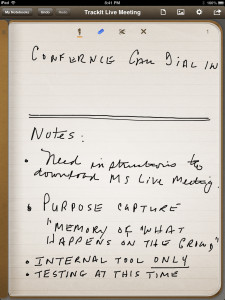 iPad
5:41 PM
My Notebooks
Undo
Redo
TrackIt Live Meeting
CONFERNCE CALL DIAL IN
NOTES:
• Need instructions to
download MS Live Meeting.
• PURPOSE CAPTURE
"MEMORY OF "WHAT
HAPPENS ON THE GROUND"
• INTERNAL TOOL ONLY
• TESTING AT THIS TIME